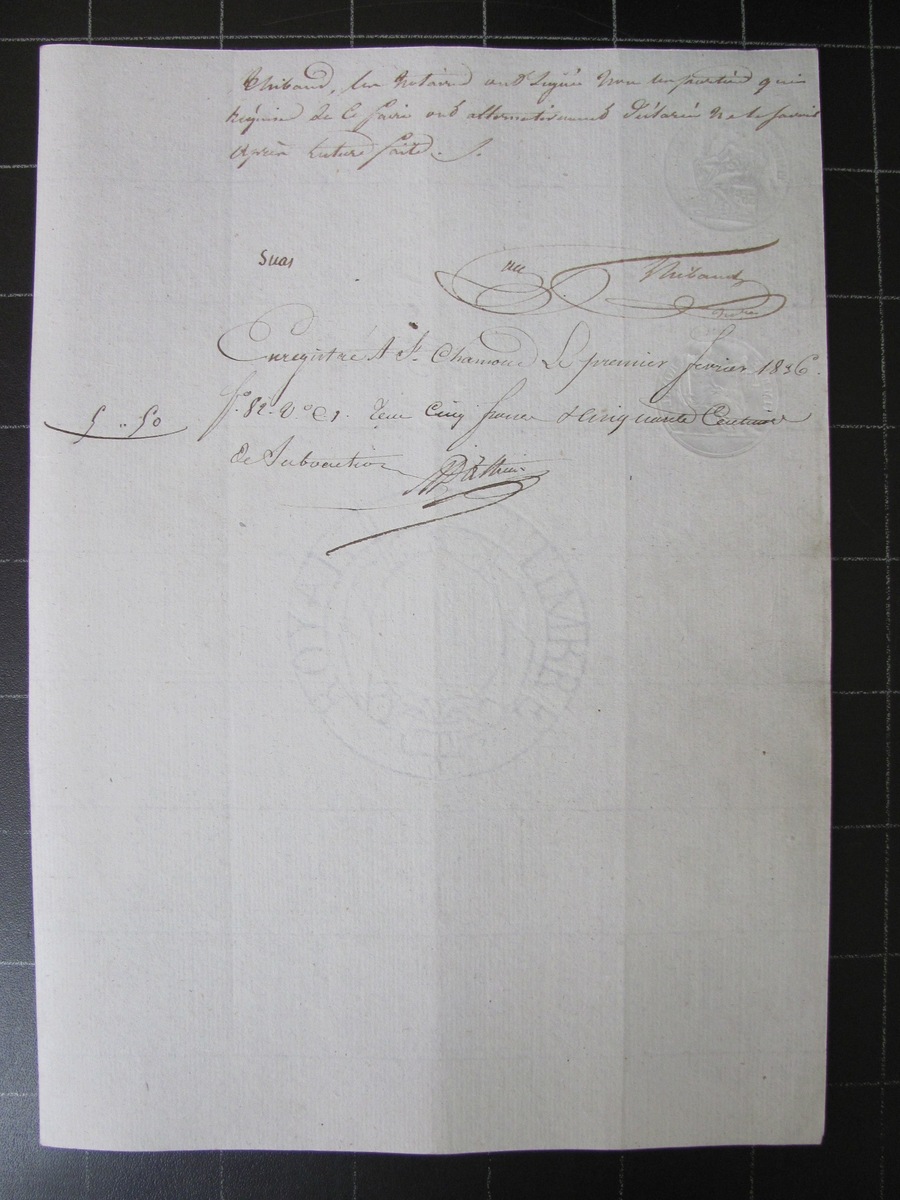 Thibaud, les notaires ont signé non les parties qui
requises de ce faire ont alternativement déclaré ne le savoir
après lecture faite.
Suas
Thibaud
notre
Enregistré à St. Chamond le premier fevrier 1836.
fo. 82. Vo. C1. Reçu cinq francs & cinquante centimes
5 .. 50
de subvention
ROYAL
TIMBRE